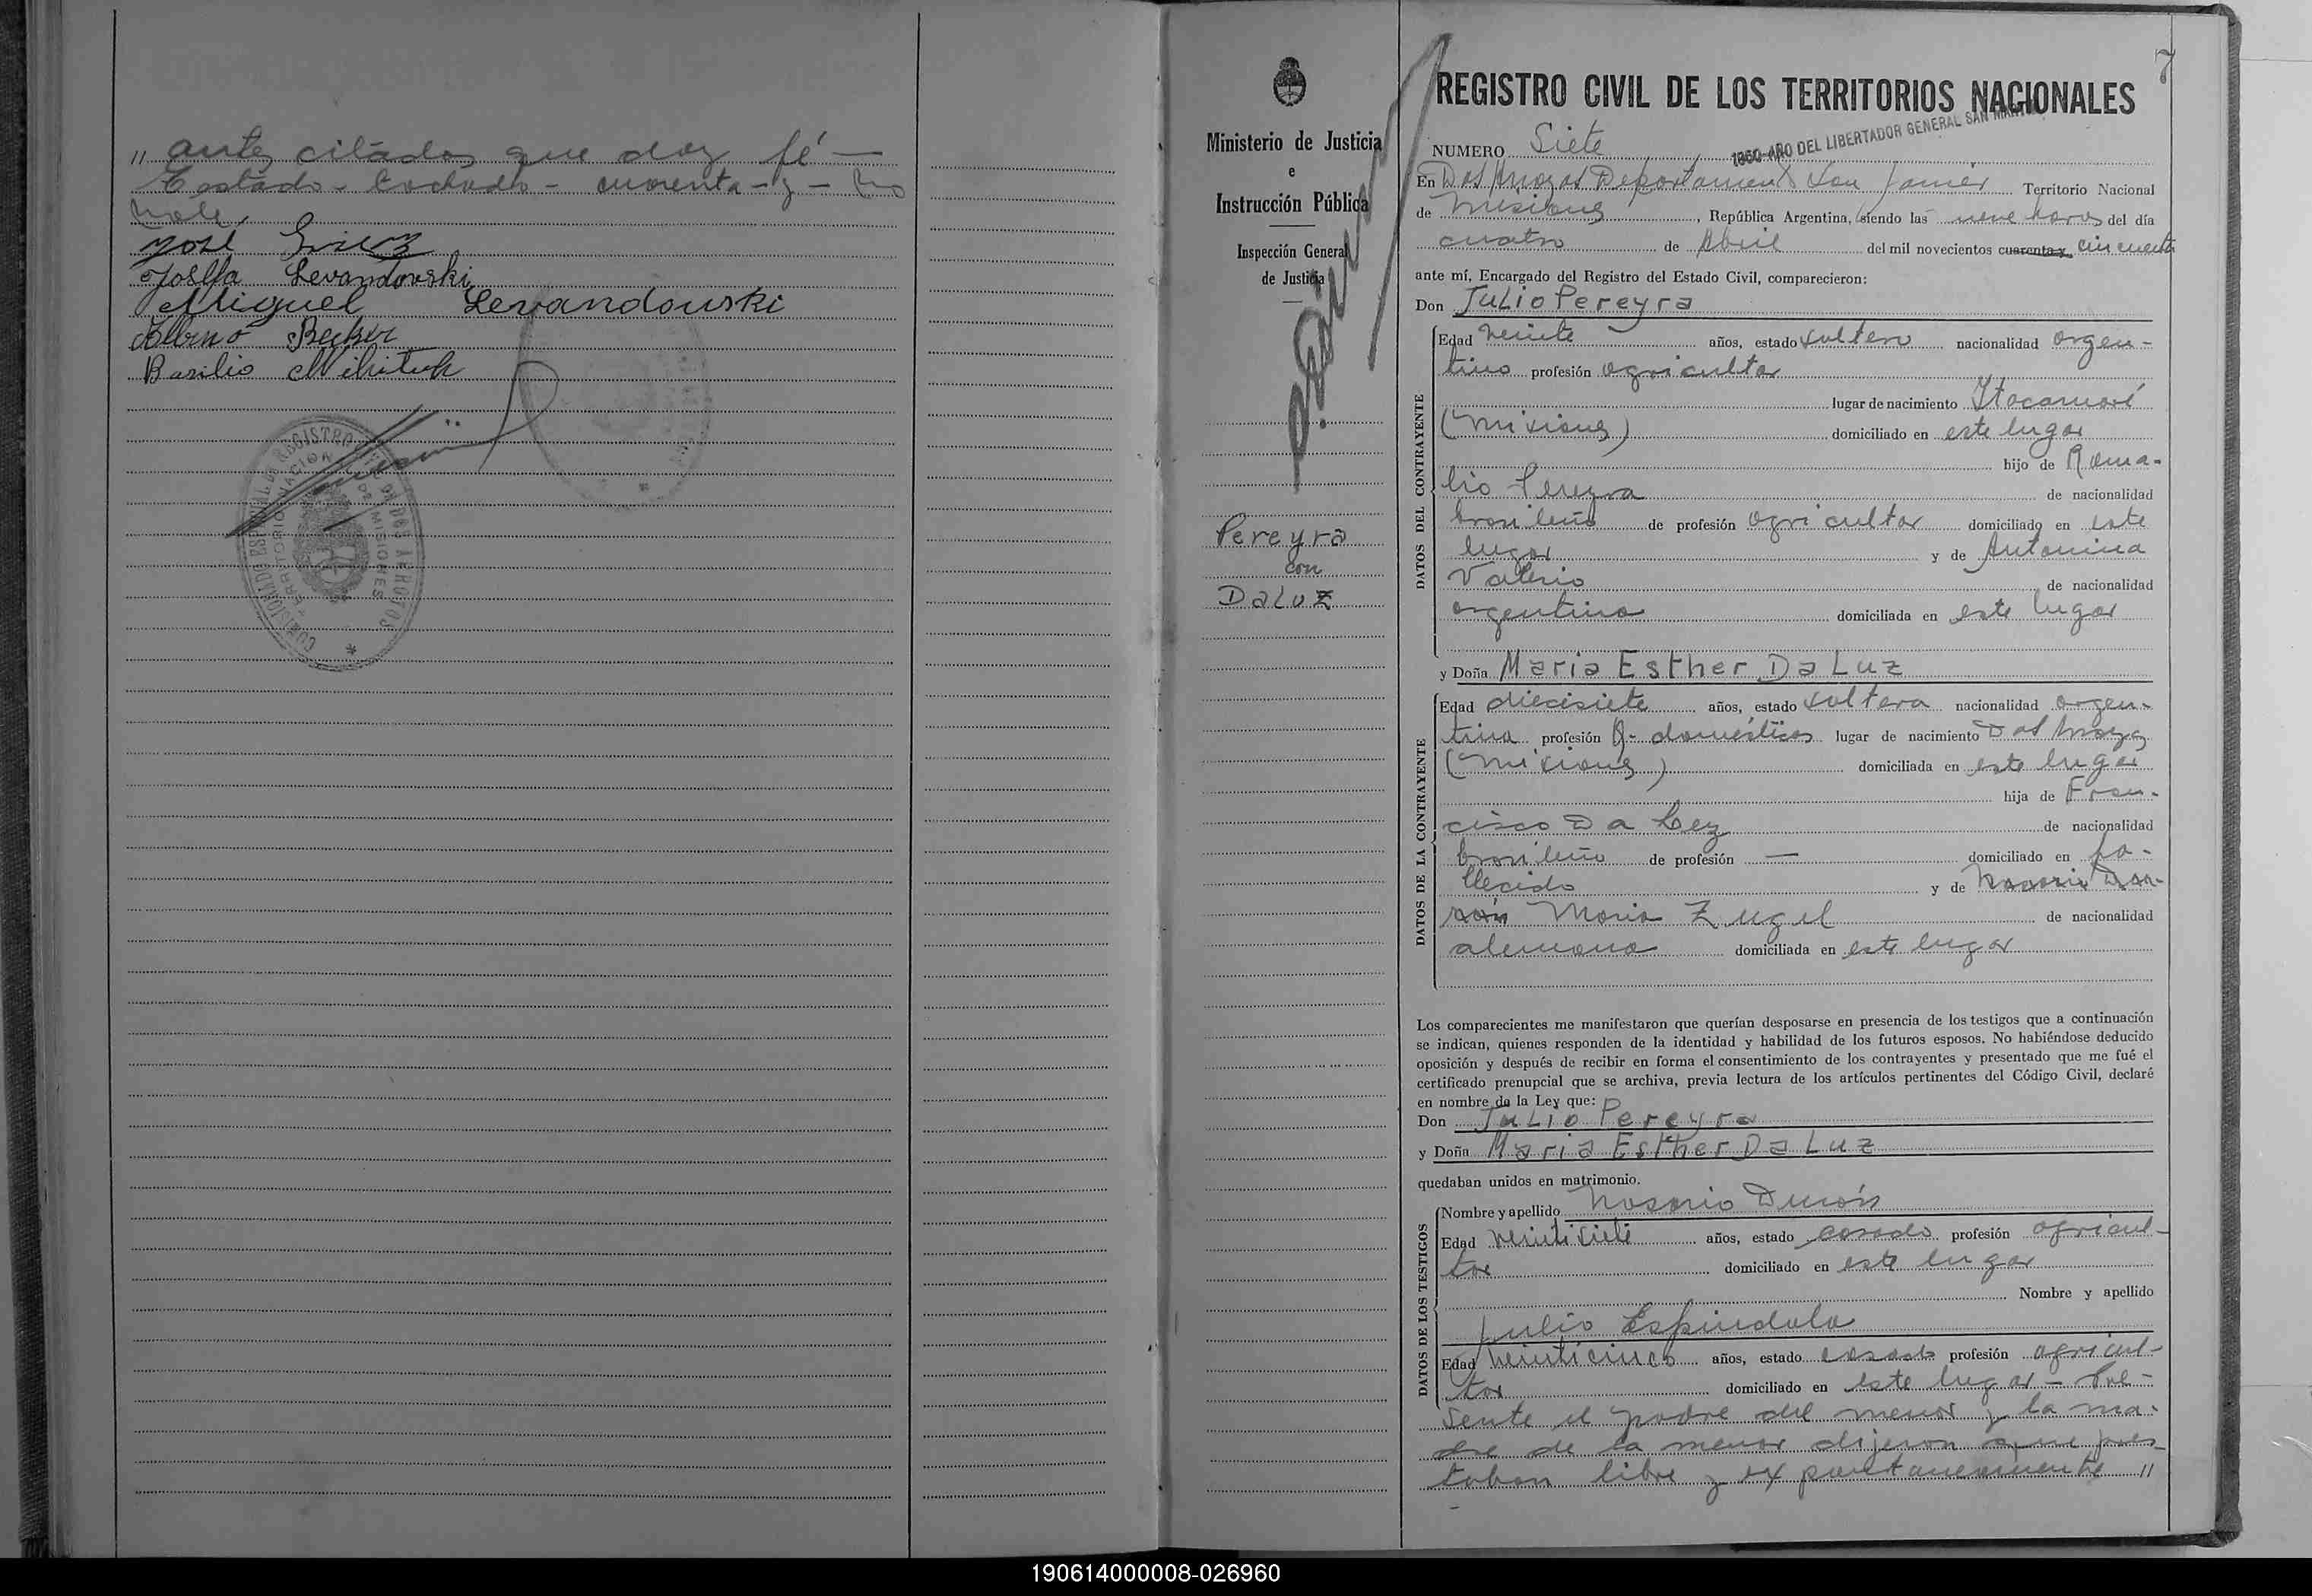 " antes citados que doy fé —
Testado - Tachado - cuarenta - y - No
vale.
José
Joseffa Levandovski
Miguel Levandouski
Albino Becker
Basilio Mikituk
REGISTRO
DE MISIONES
7
REGISTRO CIVIL DE LOS TERRITORIOS NACIONALES
1950 - AÑO DEL LIBERTADOR GENERAL SAN MARTIN
Ministerio de Justicia
e
Instrucción Pública
Inspección General
de Justicia
Pereyra
con
Da Luz
NUMERO Siete
En Dos Arroyos Departamento San Javier Territorio Nacional
de Misiones, República Argentina, siendo las nueve horas del día
cuatro de Abril del mil novecientos cuarenta y cincuenta
ante mí, Encargado del Registro del Estado Civil, comparecieron:
Don Julio Pereyra
DATOS DEL CONTRAYENTE
Edad veinte años, estado soltero nacionalidad argen-
tino profesión agricultor
lugar de nacimiento Itacaruaré
(Misiones) domiciliado en este lugar
hijo de Roma-
lio Pereyra de nacionalidad
brasileño de profesión agricultor domiciliado en este
lugar y de Antonina
Valerio de nacionalidad
argentina domiciliada en este lugar
y Doña Maria Esther Da Luz
DATOS DE LA CONTRAYENTE
Edad diecisiete años, estado soltera nacionalidad argen-
tina profesión Q. domésticos lugar de nacimiento Dos Arroyos
(Misiones) domiciliada en este lugar
hija de Fran-
cisco Da Luz de nacionalidad
brasileño de profesión — domiciliado en fa-
llecido y de Rosario Du-
rán Maria Zugel de nacionalidad
alemana domiciliada en este lugar
Los comparecientes me manifestaron que querían desposarse en presencia de los testigos que a continuación
se indican, quienes responden de la identidad y habilidad de los futuros esposos. No habiéndose deducido
oposición y después de recibir en forma el consentimiento de los contrayentes y presentado que me fué el
certificado prenupcial que se archiva, previa lectura de los artículos pertinentes del Código Civil, declaré
en nombre de la Ley que:
Don Julio Pereyra
y Doña Maria Esther Da Luz
quedaban unidos en matrimonio.
DATOS DE LOS TESTIGOS
Nombre y apellido Rosario Durán
Edad veintisiete años, estado casado profesión agricul-
tor domiciliado en este lugar
Nombre y apellido
Julio Espindola
Edad veinticinco años, estado casado profesión agricul-
tor domiciliado en este lugar - Pre-
sente el padre del menor y la ma-
dre de la menor dijeron que pres-
taban libre y expontaneamente "
190614000008-026960